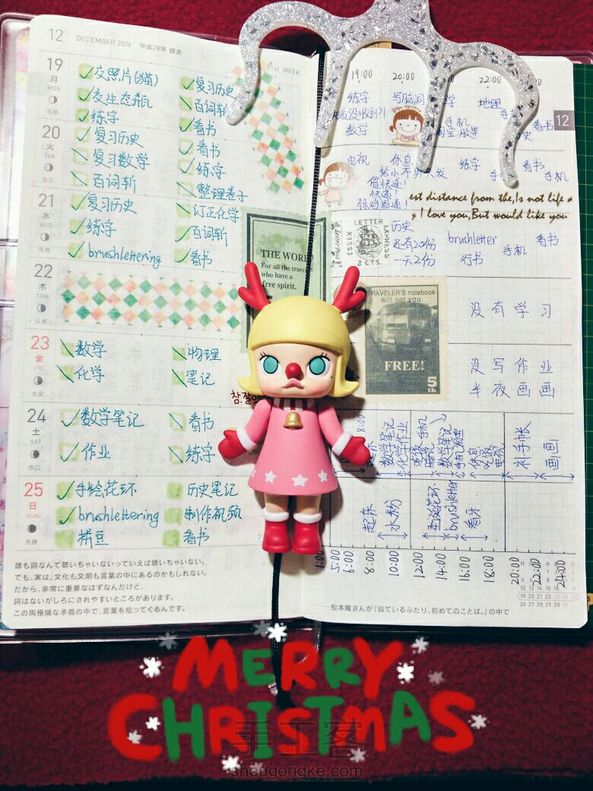 12 DECEMBER 2016 平成28年 師走
51st WEEK
19
月
MON
交照片(猫)
交生态瓶
练字
复习历史
百词斩
看书
20
火
TUE
复习历史
复习数学
百词斩
看书
练字
整理卷子
21
水
WED
复习历史
练字
brushlettering
订正化学
百词斩
看书
22
木
THU
23
金
FRI
数学
化学
物理
笔记
24
土
SAT
数学笔记
作业
看书
练字
25
日
SUN
手绘花环
brushlettering
捕豆
历史笔记
制作视频
看书
誰も詞なんて聴いちゃいないっていえば聴いちゃいない。
でも、実は、文化も文明も言葉の中にあるのかもしれない。
だから、非常に重要なはずなんだけど、
詞はないがしろにされやすいところがあります。
この両極端な矛盾の中で、言葉を拾ってくるんです。
THE WORLD
For all the travelers
who have a
free spirit.
19:00 20:00 22:00
练字
数学
地图
手机
看书
12
休息
练字
看书
手机
est distance from the,Is not life a
I love you,But would like you
LETTER
EXPRESS
2 CTS.
历史
还有20份
一天2份
brushletter
行书
手机
看书
TRAVELER'S notebook
will set you
FREE!
5
没有学习
没写作业
半夜画画
참 잘했
数学笔记
化学作业
数学笔记
休息
补手帐
画画
起床
水粉
画花环
brushletter
看牙
5:00
6:00
8:00
10:00
12:00
14:00
16:00
18:00
20:00
22:00
24:00
松本隆さんが『似ているふたり、初めてのことば。』の中で
MERRY
CHRISTMAS
手工客
shougongke.com